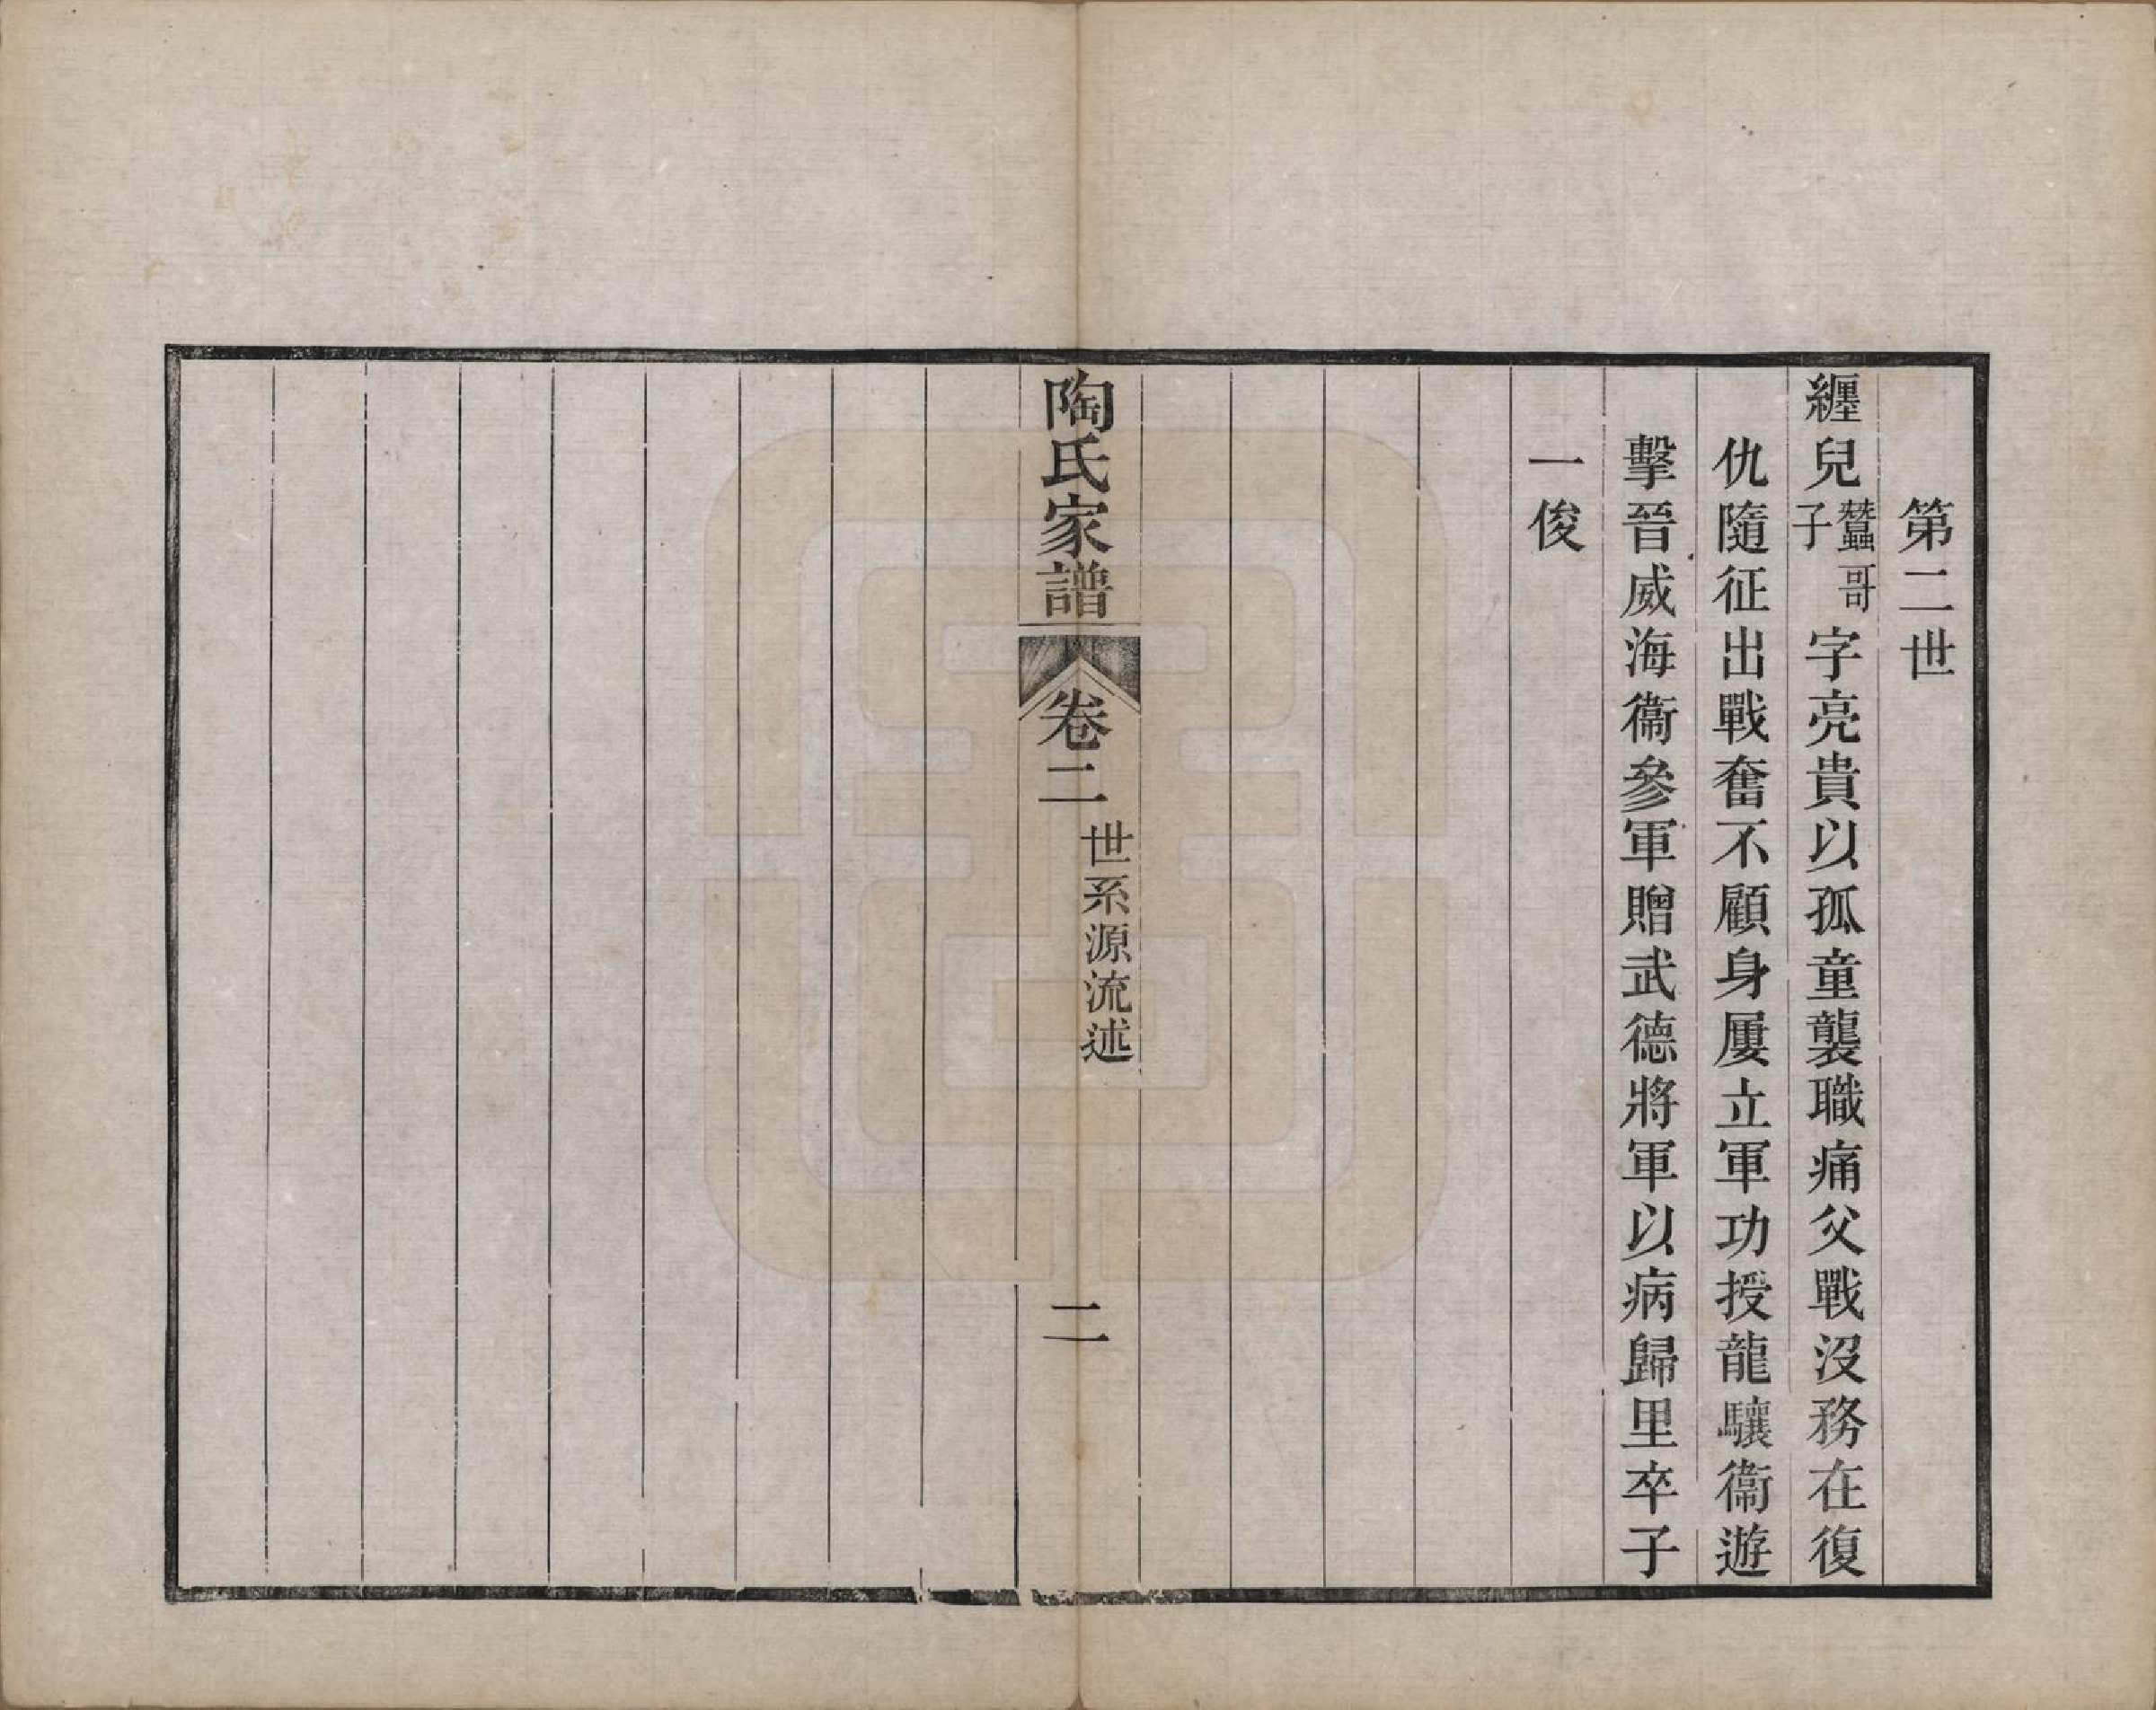 第二世
纒兒蠶哥子字亮貴以孤童襲職痛父戰沒務在復
仇隨征出戰奮不顧身屢立軍功授龍驤衞遊
擊晉威海衞參軍贈武德將軍以病歸里卒子
一俊
陶氏家譜
卷二
世系源流述
二